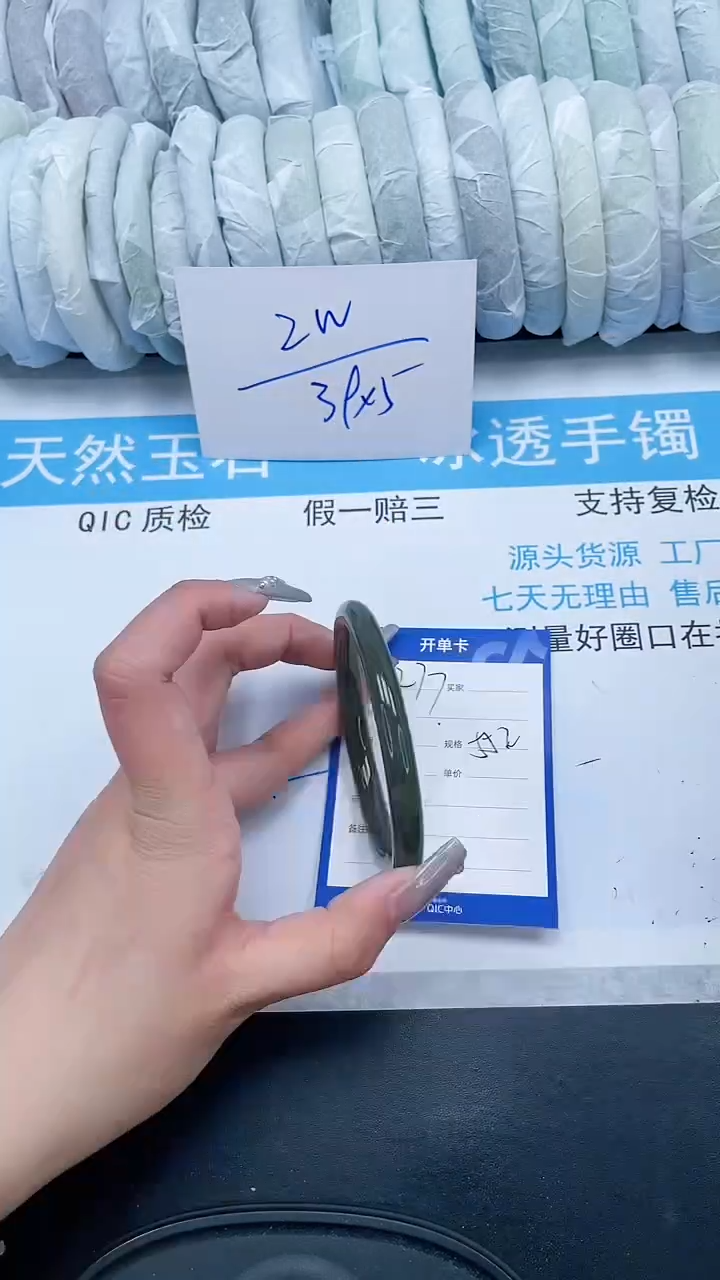 2W
39x5
天然玉石
冰透手镯
QIC 质检 假一赔三 支持复检
源头货源 工厂
七天无理由 售后
测量好圈口在
开单卡
277
买家
规格
单价
备注
QIC中心